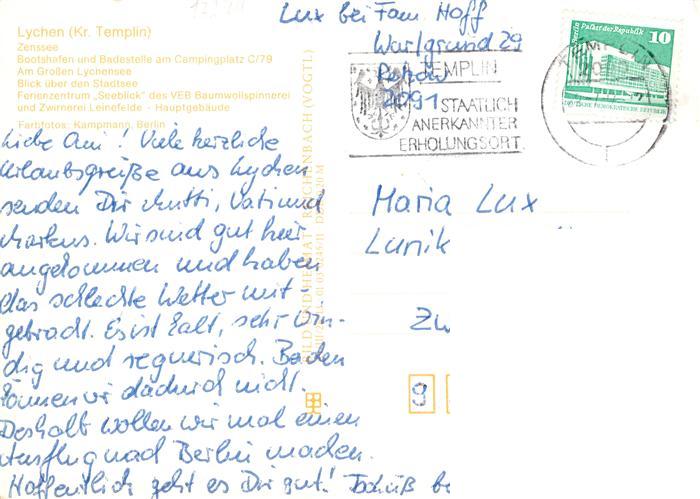 Lychen (Kr. Templin)
Zenssee
Bootshafen und Badestelle am Campingplatz C/79
Am Großen Lychensee
Blick über den Stadtsee
Ferienzentrum „Seeblick" des VEB Baumwollspinnerei
und Zwirnerei Leinefelde - Hauptgebäude
Farbfotos: Kampmann, Berlin
Lux bei Fam. Hoff
29
2091
TEMPLIN
STAATLICH
ANERKANNTER
ERHOLUNGSORT
Palast der Republik
10
Berlin
TEMPLIN
DEUTSCHE DEMOKRATISCHE REPUBLIK
Liebe Omi! Viele herzliche
Urlaubsgrüße aus Lychen
senden Dir Mutti, Vati und
Markus. Wir sind gut hier
angekommen und haben
das schlechte Wetter mit-
gebracht. Es ist kalt, sehr win-
dig und regnerisch. Baden
können wir dadurch nicht.
Deshalb wollen wir mal einen
Ausflug nach Berlin machen.
Hoffentlich geht es Dir gut! Tschüß b
BILD UND HEIMAT REICHENBACH (VOGTL)
Maria Lux
Lunik
Zw
9